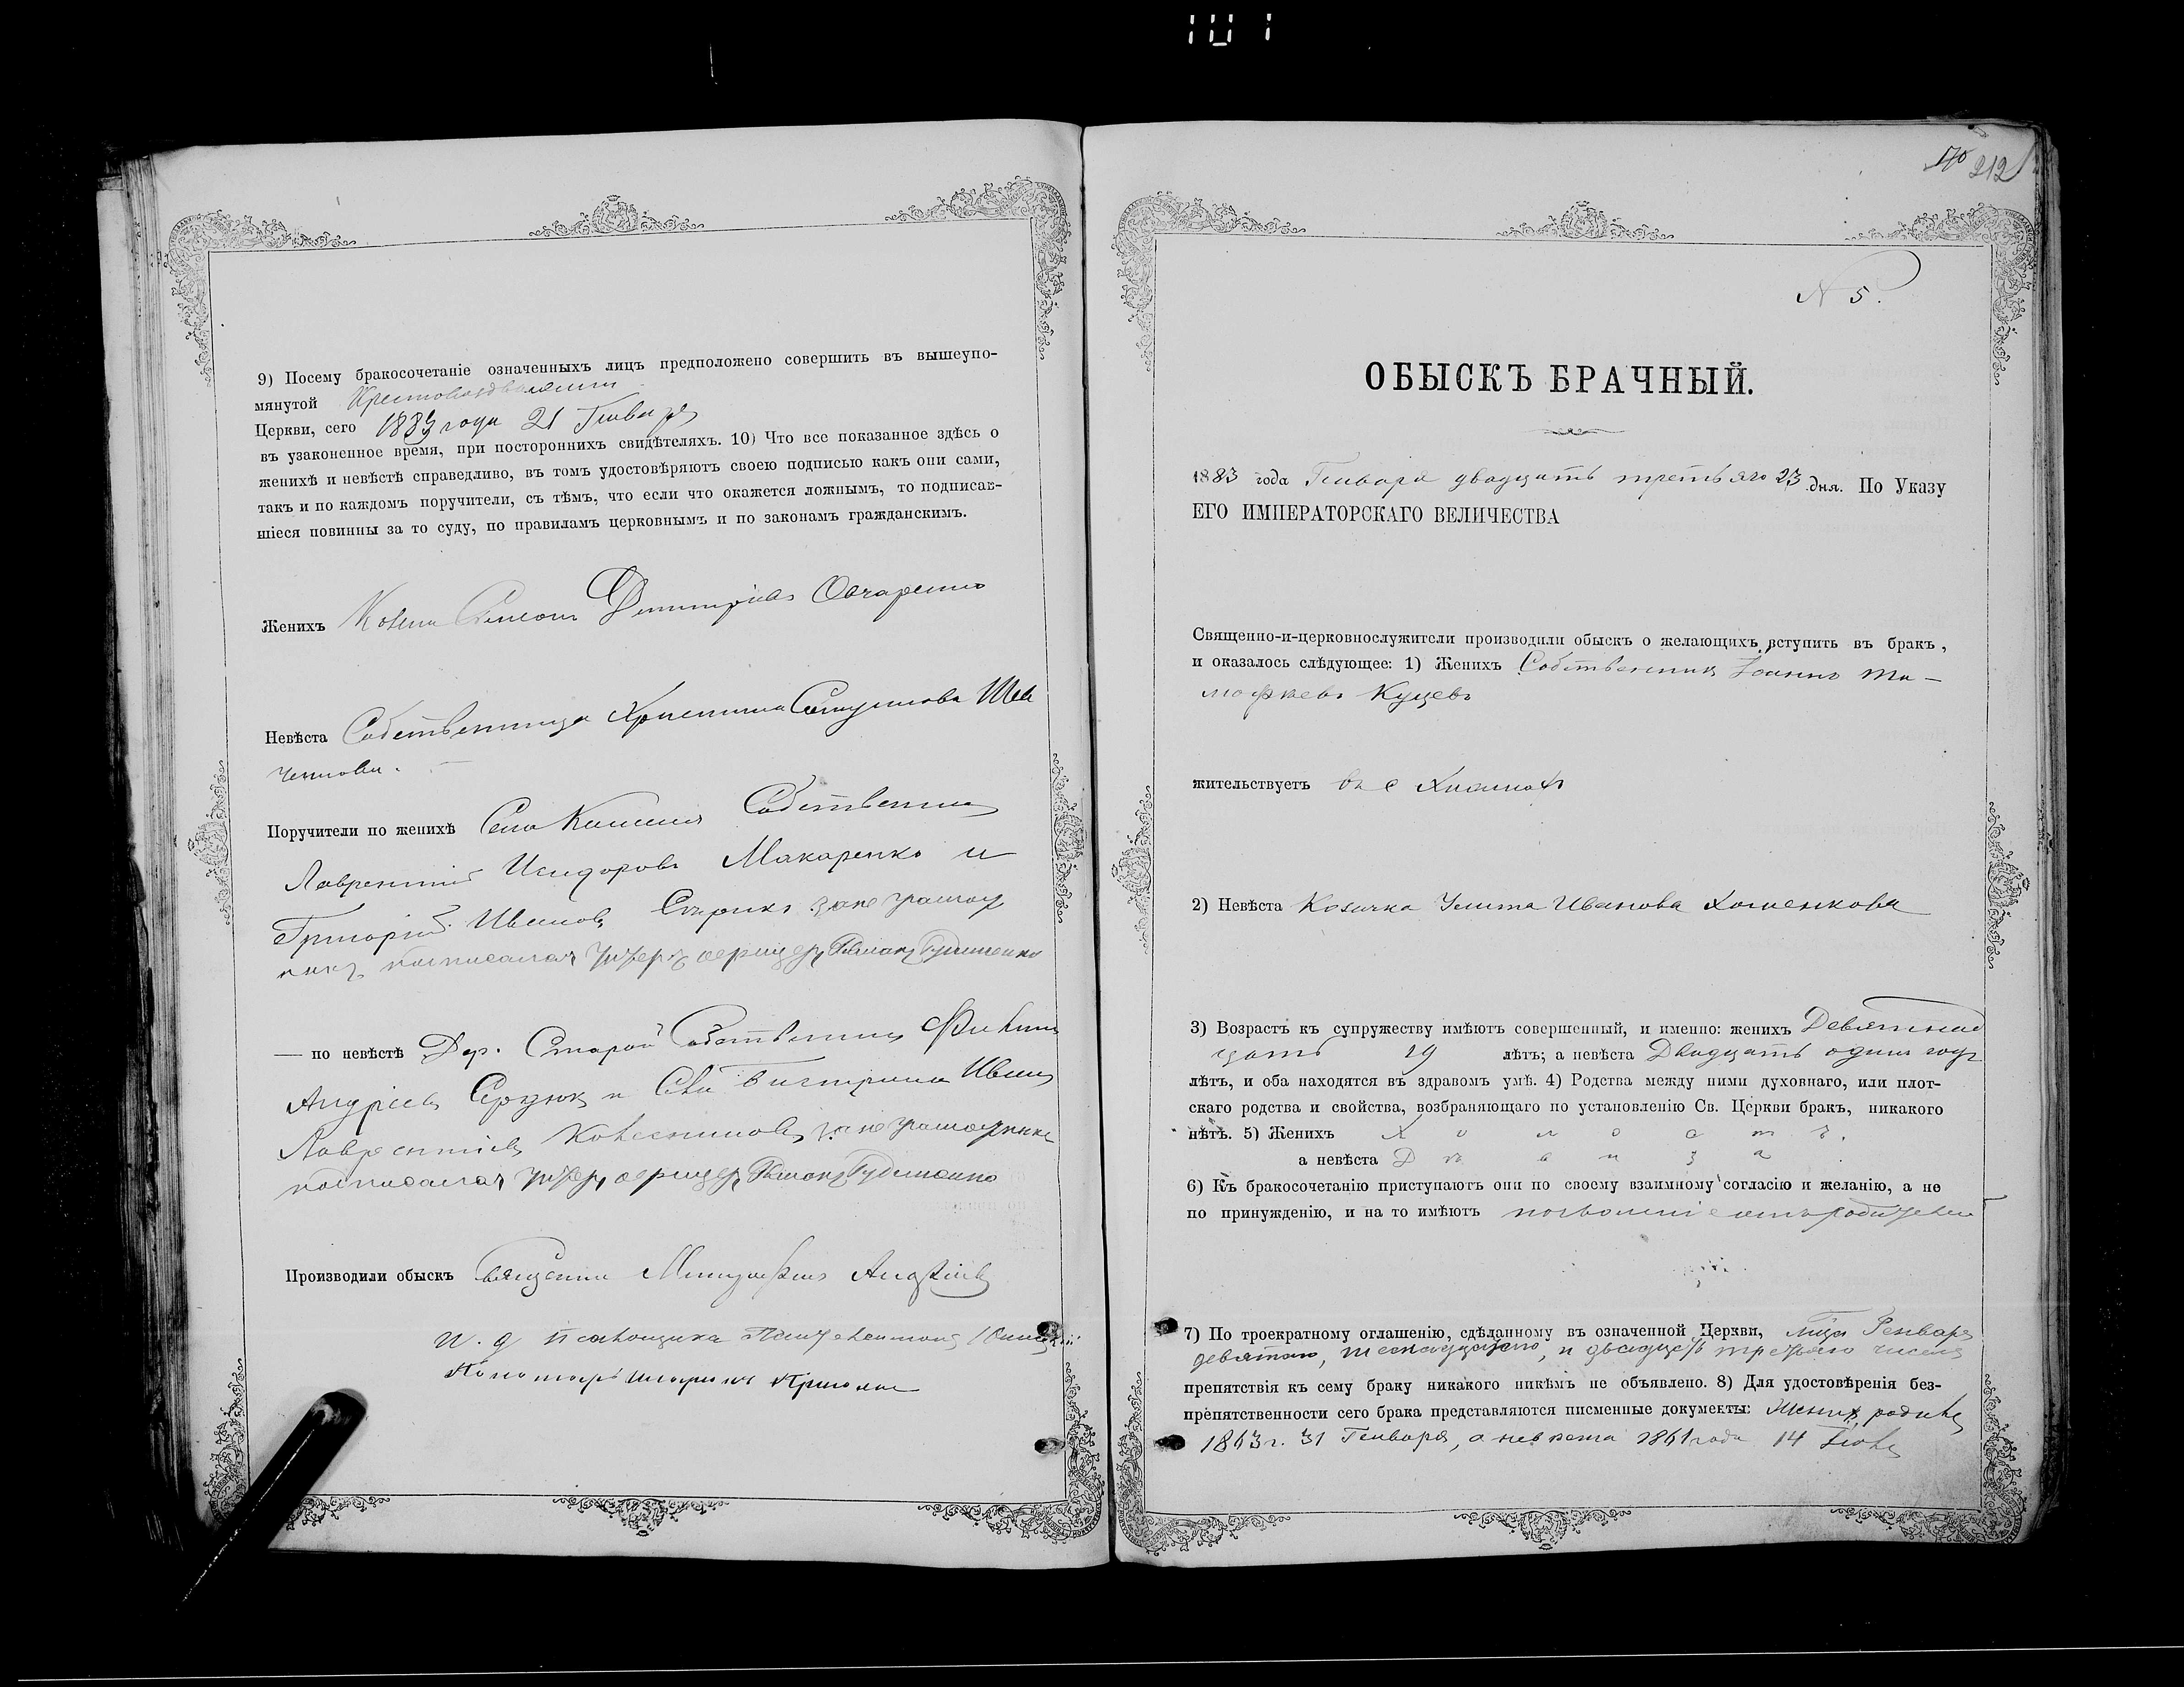 9) Посему бракосочетаніе означенныхъ лицъ предположено совершить въ вышеупо-
мянутой
Церкви, сего 1883 года 21 Генваря
въ узаконенное время, при постороннихъ свидѣтеляхъ. 10) Что все показанное здѣсь о
женихѣ и невѣстѣ справедливо, въ томъ удостовѣряютъ своею подписью какъ они сами,
такъ и по каждомъ поручители, съ тѣмъ, что если что окажется ложнымъ, то подписав-
шіеся повинны за то суду, по правиламъ церковнымъ и по законамъ гражданскимъ.
Женихъ Димитріевъ Овчаренко
Невѣста Собственница Христина Шев
ченкова.
Поручители по женихѣ Села Собственник
Лаврентій Исидоровъ Макаренко и
Григорій Иванов
Романъ
— по невѣстѣ Дер. Старой Собственник
Андріевъ Сердюкъ и Иван
Лаврентіевъ
Романъ
Производили обыскъ Священник
и. д. псаломщика
Пономарь
170 212
№ 5.
ОБЫСКЪ БРАЧНЫЙ.
1883 года Генваря двадцать третьяго 23 дня. По Указу
ЕГО ИМПЕРАТОРСКАГО ВЕЛИЧЕСТВА
Священно-и-церковнослужители производили обыскъ о желающихъ вступить въ бракъ,
и оказалось слѣдующее: 1) Женихъ Собственникъ Іоаннъ Ти-
мофѣевъ Куцевъ
жительствуетъ въ с
2) Невѣста Козачка Улита Иванова Хоменкова
3) Возрастъ къ супружеству имѣютъ совершенный, и именно: женихъ Девятнад
цать 19 лѣтъ; а невѣста Двадцать одинъ годъ
лѣтъ, и оба находятся въ здравомъ умѣ. 4) Родства между ними духовнаго, или плот-
скаго родства и свойства, возбраняющаго по установленію Св. Церкви бракъ, никакого
нѣтъ. 5) Женихъ Холостъ.
а невѣста Дѣвица.
6) Къ бракосочетанію приступаютъ они по своему взаимному согласію и желанію, а не
по принужденію, и на то имѣютъ позволеніе отъ родителей
7) По троекратному оглашенію, сдѣланному въ означенной Церкви, Генваря
девятаго, шеснадцатаго, и двадцать третьяго числа
препятствія къ сему браку никакого никѣмъ не объявлено. 8) Для удостовѣренія без-
препятственности сего брака представляются писменные документы: Женихъ родился
1863 г. 31 Генваря, а невѣста 1861 года 14 Іюля